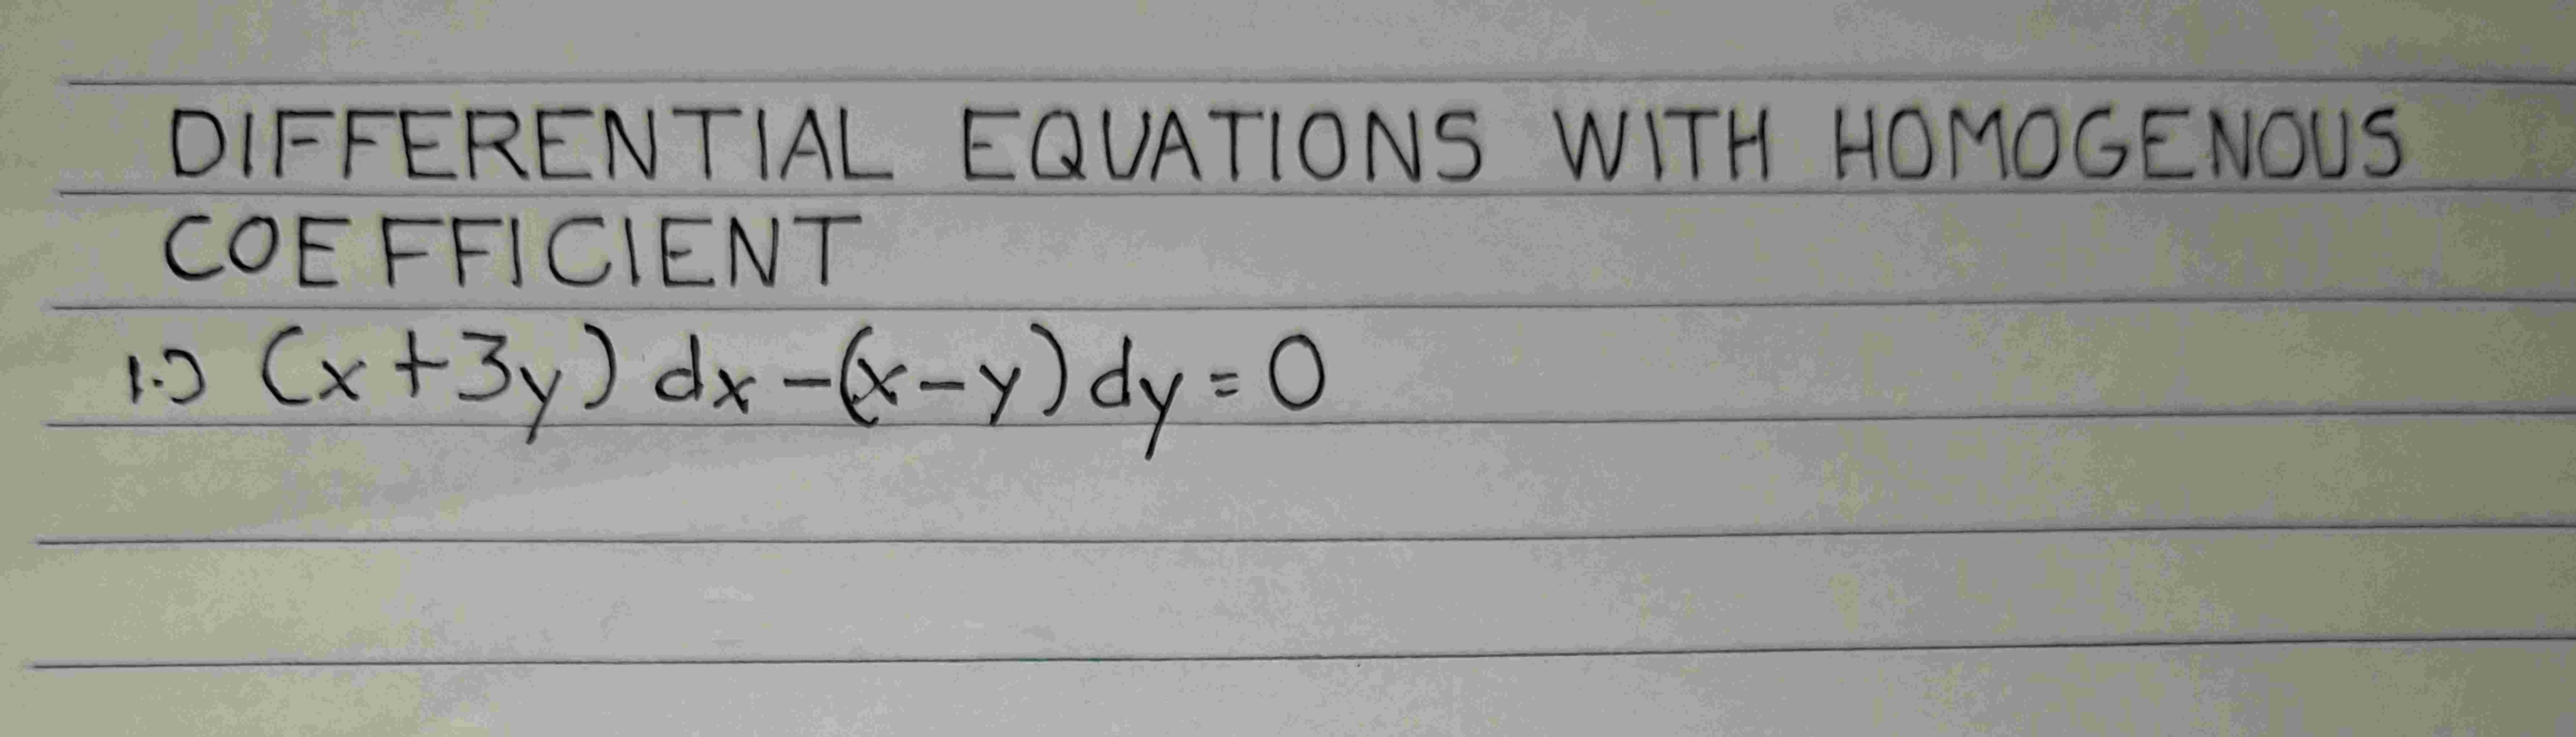 DIFFERENTIAL EQUATIONS WITH HOMOGENOUS
COEFFICIENT
1.) (x+3y) dx -(x-y) dy = 0